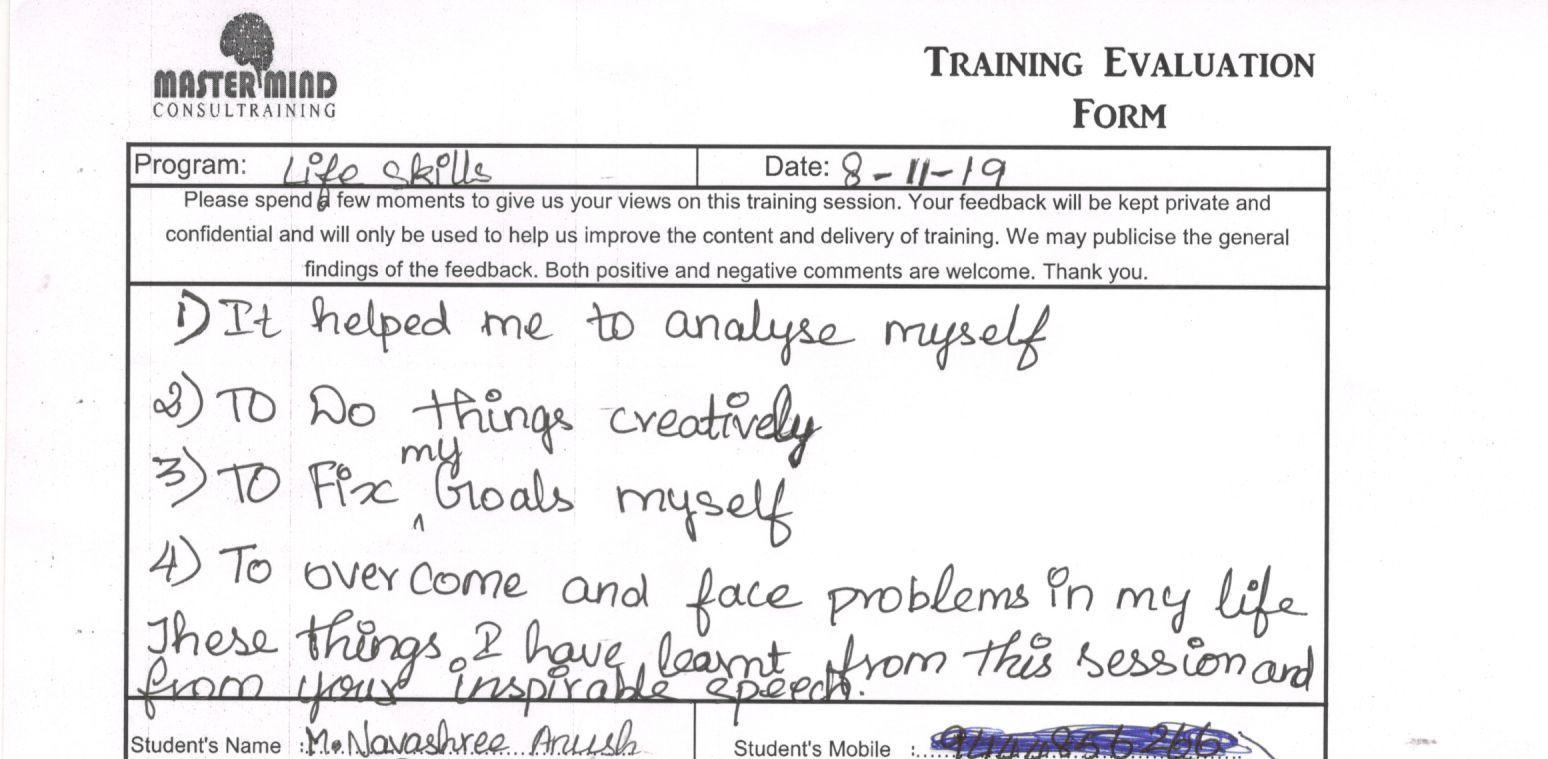 MASTER MIND
CONSULTRAINING
TRAINING EVALUATION
FORM
Program: Life Skills Date: 8-11-19
Please spend a few moments to give us your views on this training session. Your feedback will be kept private and
confidential and will only be used to help us improve the content and delivery of training. We may publicise the general
findings of the feedback. Both positive and negative comments are welcome. Thank you.
1) It helped me to analyse myself
2) TO Do things creatively
3) TO Fix my Goals myself
4) To overcome and face problems in my life
These things I have learnt from this session and
from your inspirable speech.
Student's Name : M. Navashree Anush Student's Mobile :